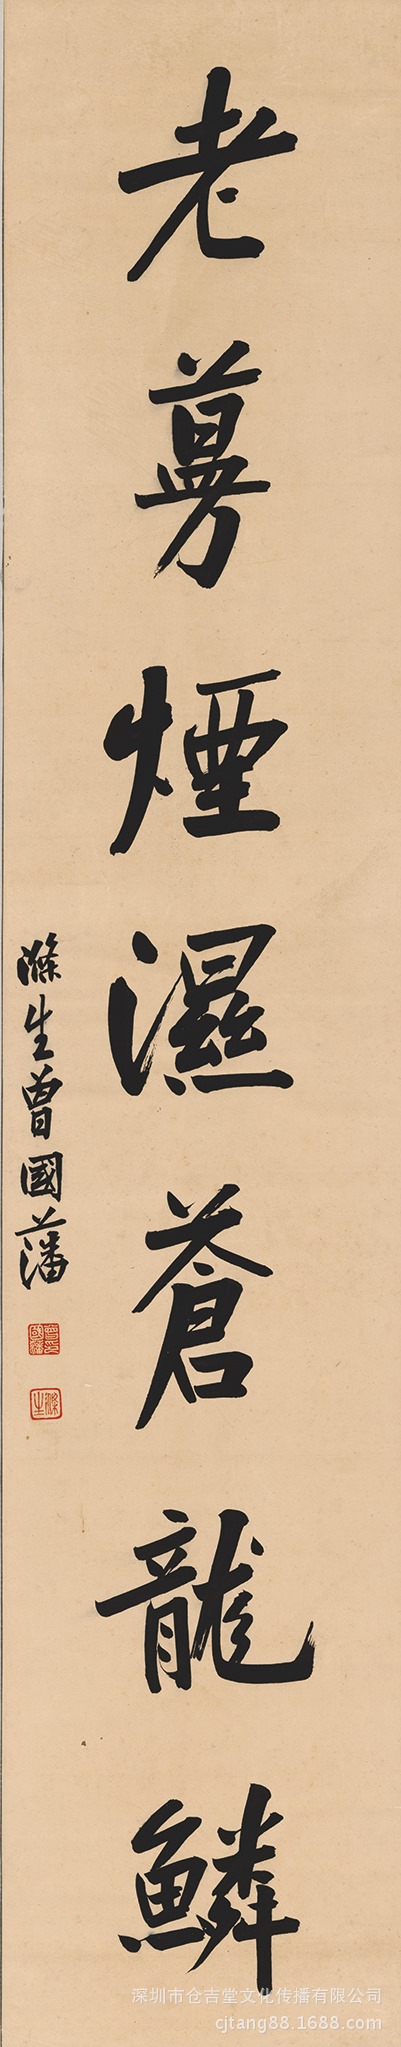 老蔓煙濕蒼龍鱗
滌生曾國藩
滌生
深圳市仓吉堂文化传播有限公司
cjtang88.1688.com